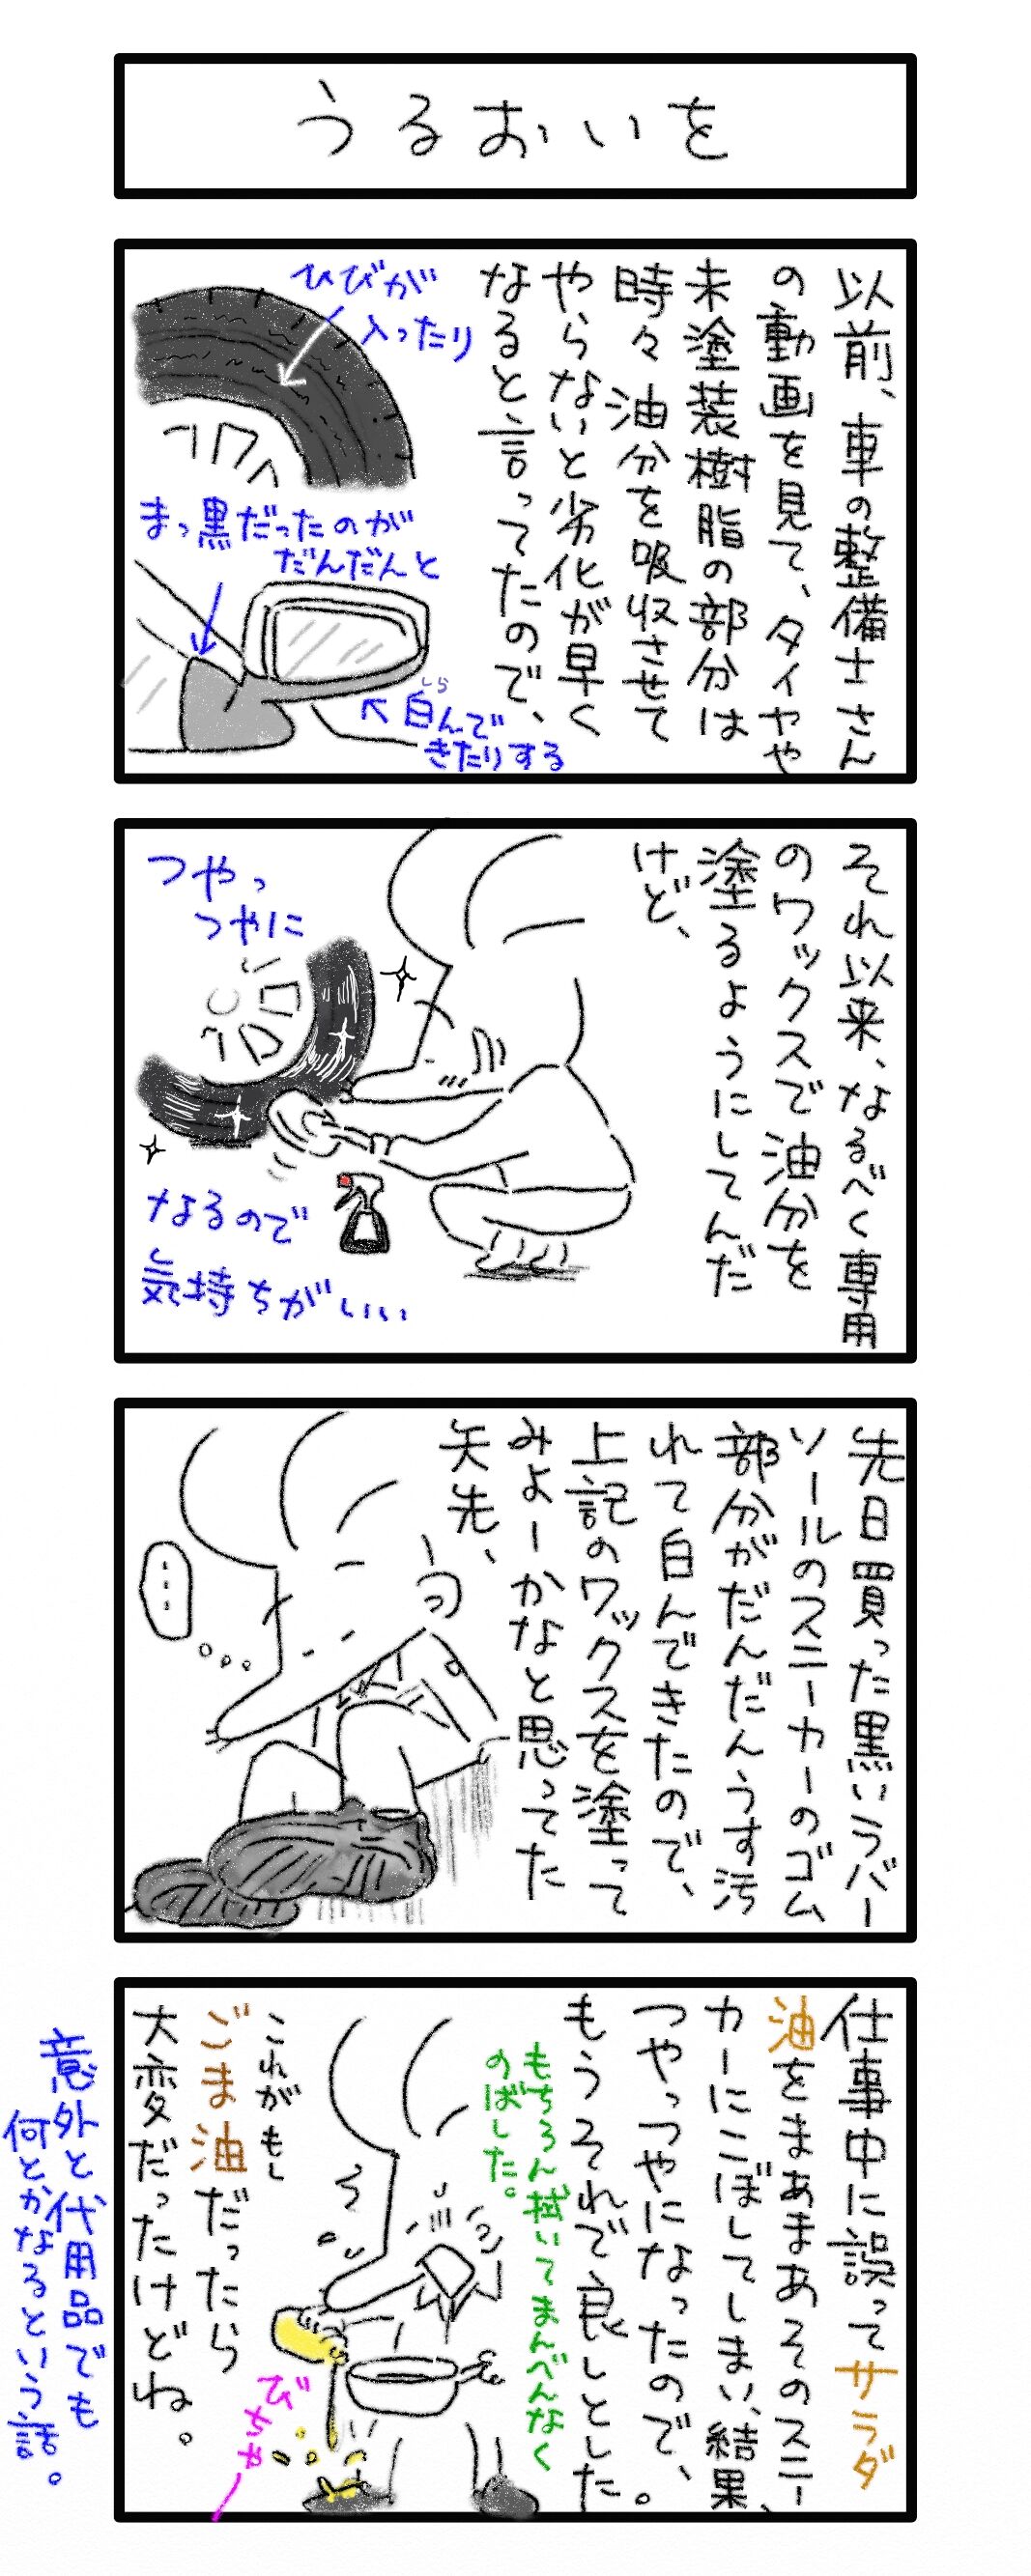 うるおいを
以前、車の整備士さん
の動画を見て、タイヤや
未塗装樹脂の部分は
時々油分を吸収させて
やらないと劣化が早く
なると言ってたので、
ひびが
入ったり
まっ黒だったのが
だんだんと
しら
白んで
きたりする
それ以来、なるべく専用
のワックスで油分を
塗るようにしてんだ
けど、
つやっ
つやに
なるので
気持ちがいい
先日買った黒いラバー
ソールのスニーカーのゴム
部分がだんだんうす汚
れて白んできたので、
上記のワックスを塗って
みよーかなと思ってた
矢先、
仕事中に誤ってサラダ
油をまあまあそのスニー
カーにこぼしてしまい、結果、
つやっつやになったので、
もうそれで良しとした。
もちろん拭いてまんべんなく
のばした。
びちゃー
これがもし
ごま油だったら
大変だったけどね。
意外と代用品でも
何とかなるという話。